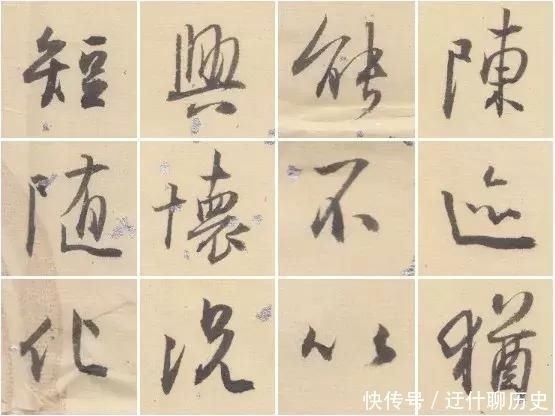 短興能陳
随懷不迹
化况以猶
快传号／迂什聊历史